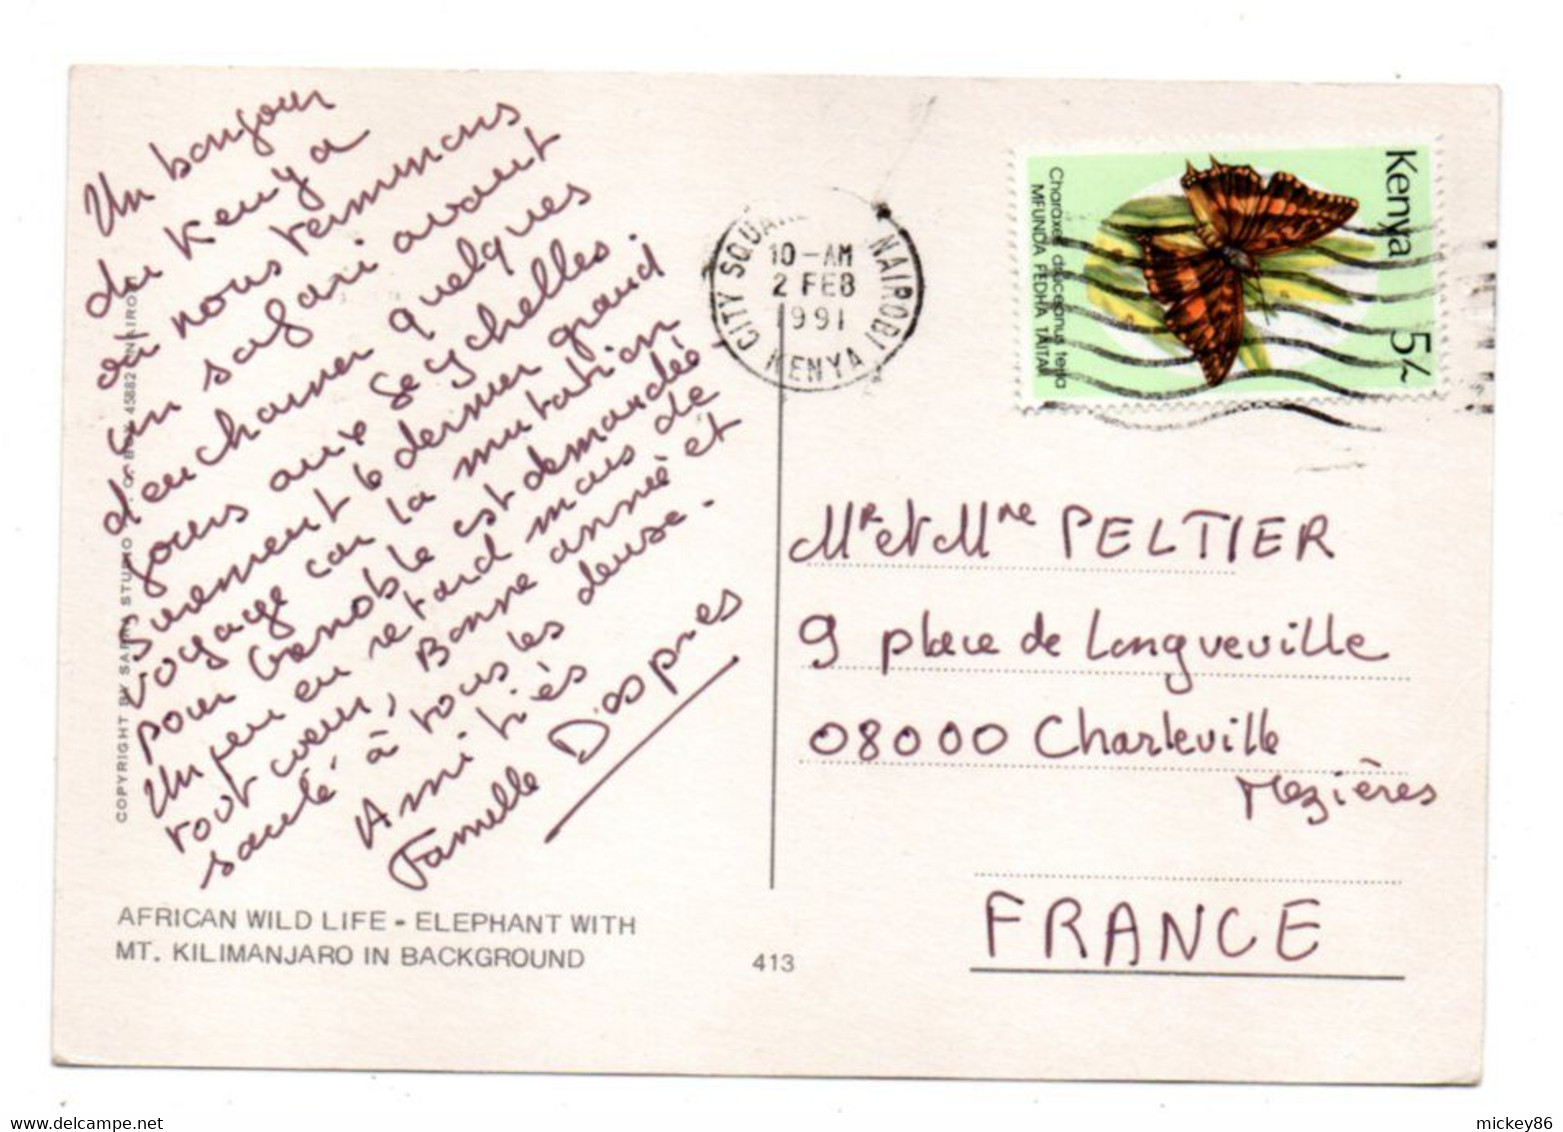 Un bonjour
du Kenya
où nous terminons
un safari avant
d'enchainer quelques
jours aux Seychelles.
Surement le dernier grand
voyage car la mutation
pour Grenoble est demandée
Un peu en retard mais de
tout coeur, Bonne année et
santé à tous les deux.
Amitiés
Famille Després
AFRICAN WILD LIFE - ELEPHANT WITH
MT. KILIMANJARO IN BACKGROUND
413
COPYRIGHT BY SAPRA STUDIO BOX 45882 NAIROBI
CITY SQUARE NAIROBI
10-AM
2 FEB
1991
KENYA
Kenya
5/-
Charaxes druceanus teita
MFUNDA FEDHA TAITA
Mr et Mme PELTIER
9 place de Longueville
08000 Charleville
Mezières
FRANCE
mickey86